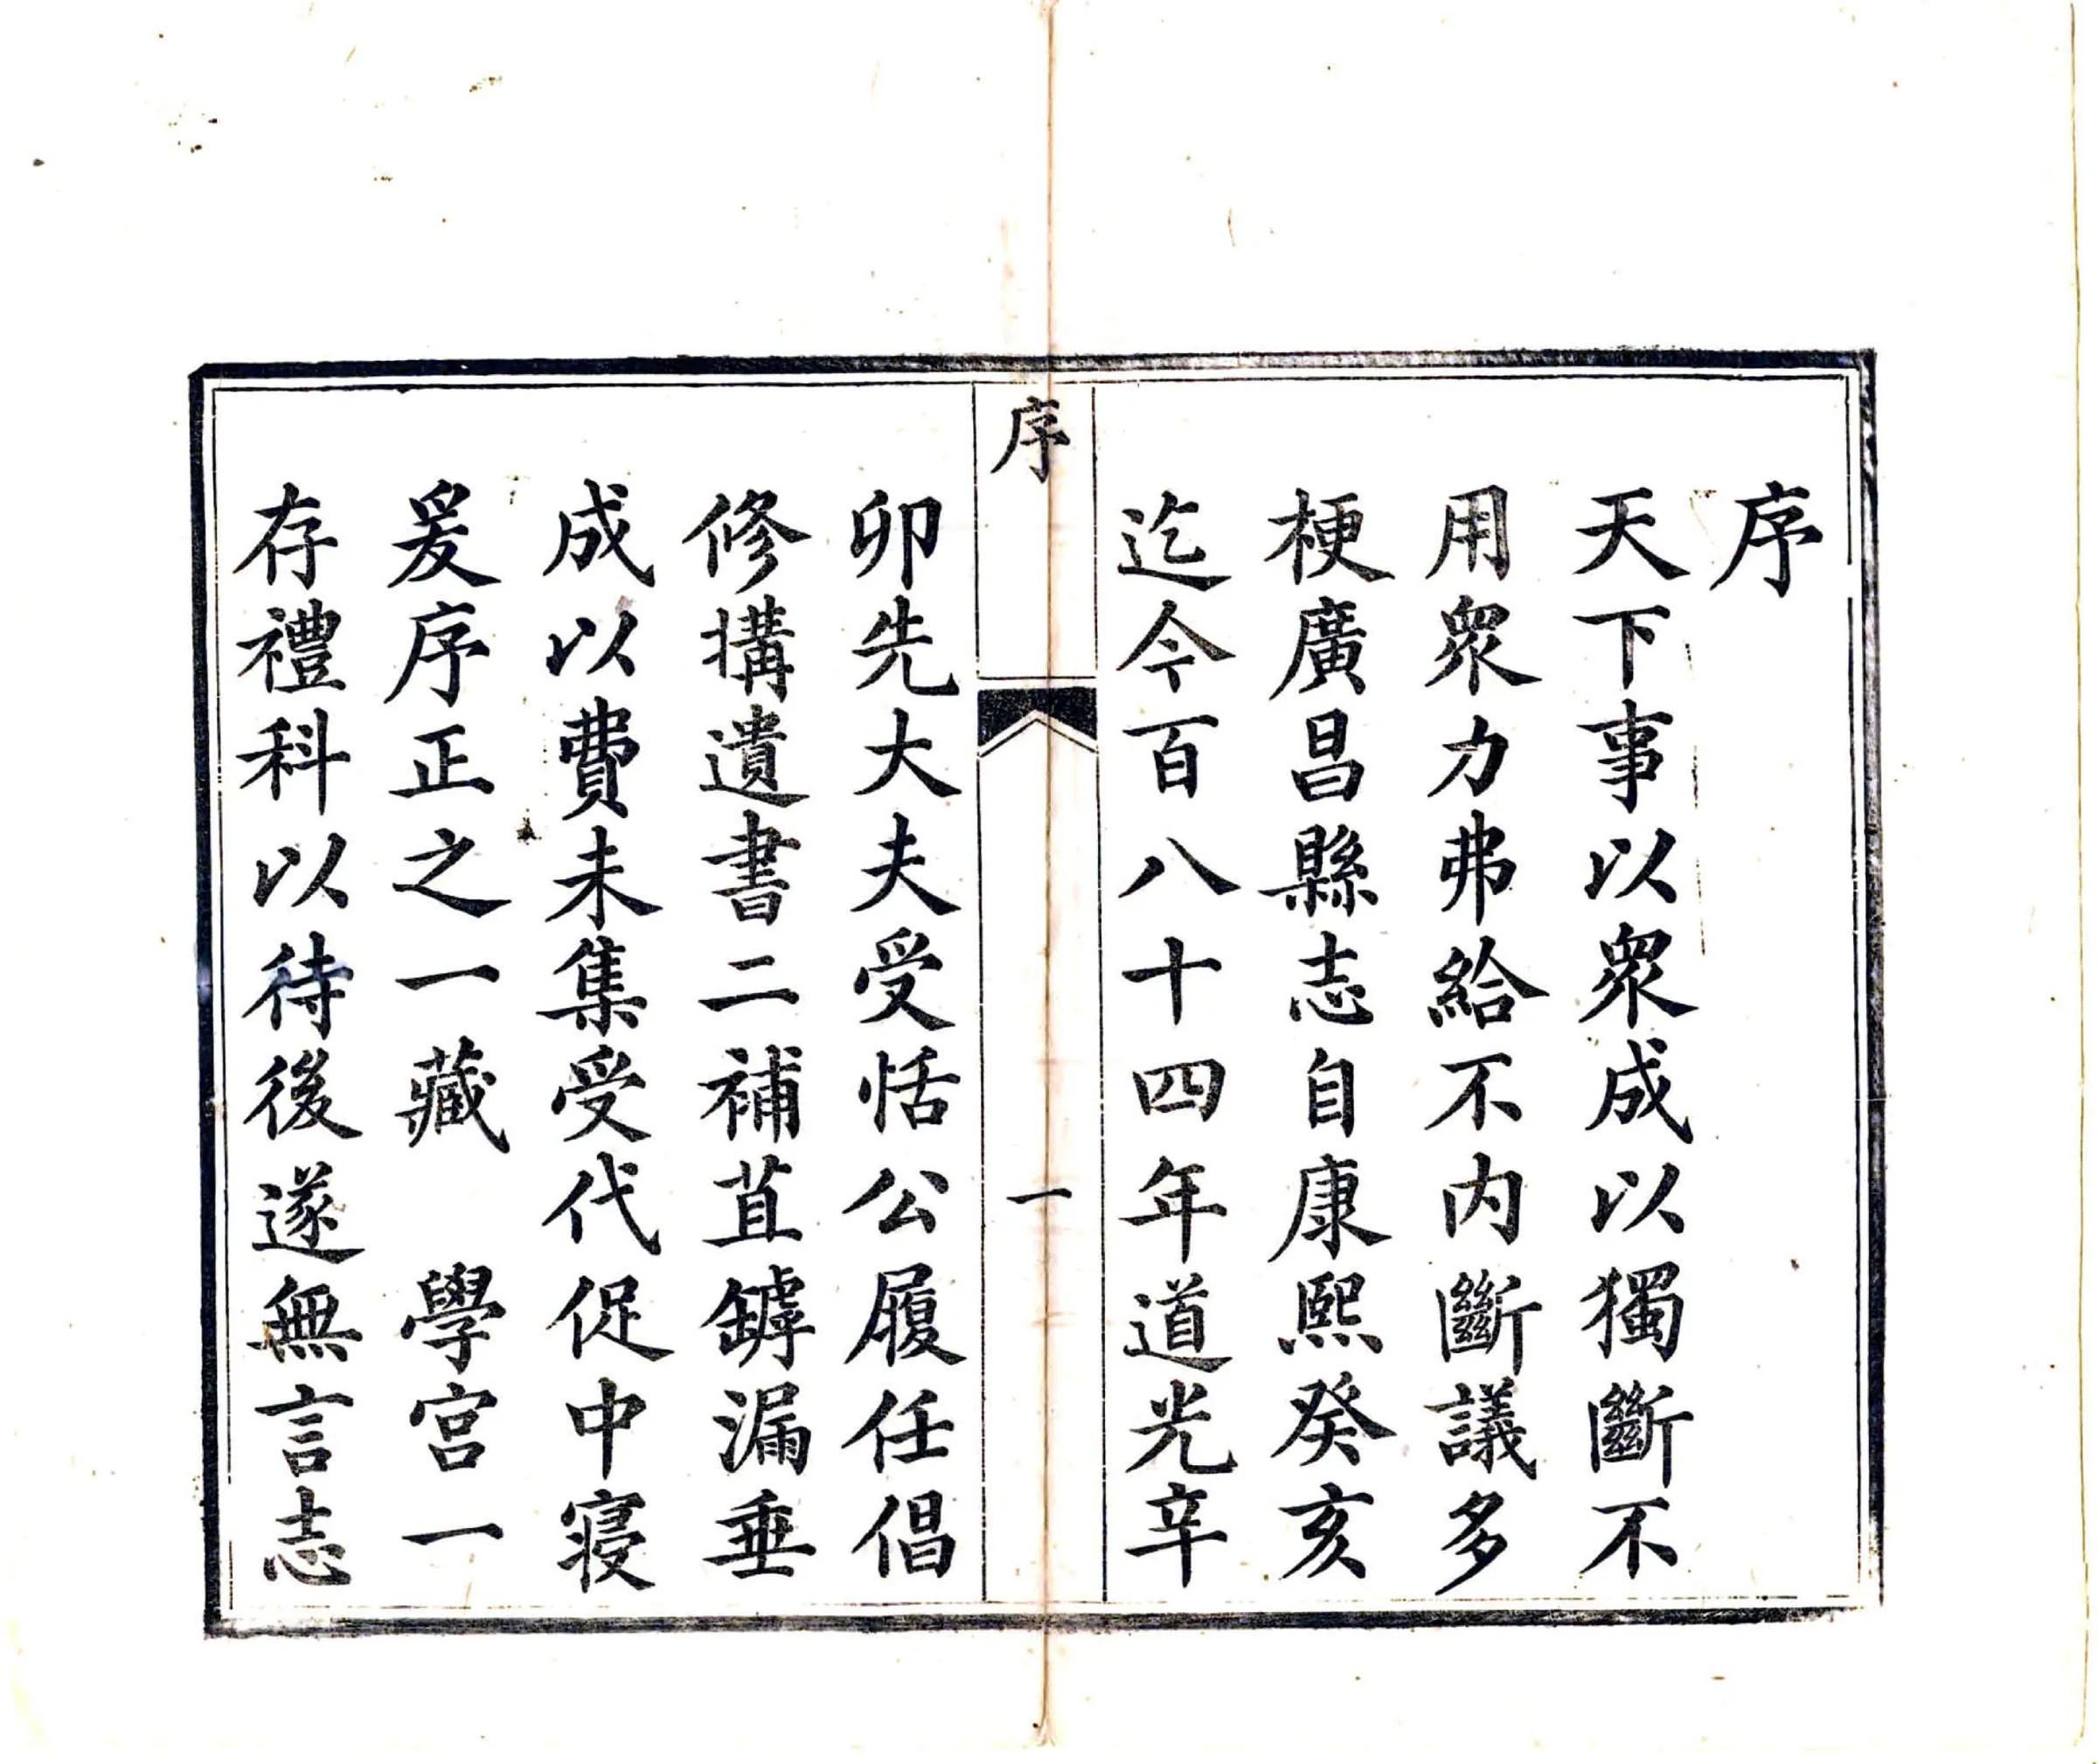 序
天下事以衆成以獨斷不
用衆力弗給不内斷議多
梗廣昌縣志自康熙癸亥
迄今百八十四年道光辛
序
一
卯先大夫受恬公履任倡
修搆遺書二補苴罅漏垂
成以費未集受代促中寝
爰序正之一藏　學宮一
存禮科以待後遂無言志